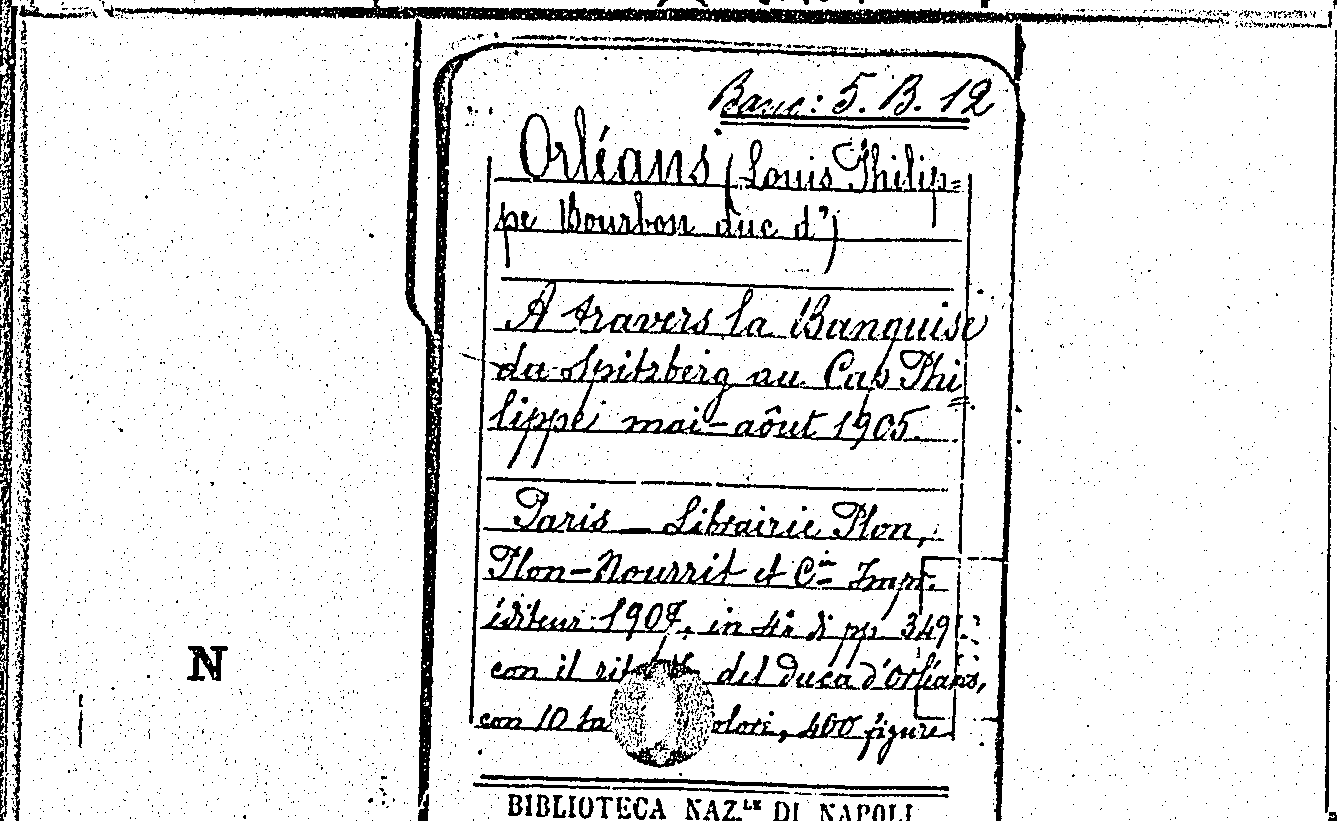 Banc: 5. B. 12
Orléans (Louis Philip=
pe Bourbon duc d')
A travers la Banquise
du Spitzberg au Cap Phi=
lippe; mai-aôut 1905.
Paris — Librairie Plon,
Plon-Nourrit et Cie Impr.
éditeur 1907, in 4º di pp 349
con il del Duca d'Orléans,
con 10 400 figure
N
BIBLIOTECA NAZ.LE DI NAPOLI